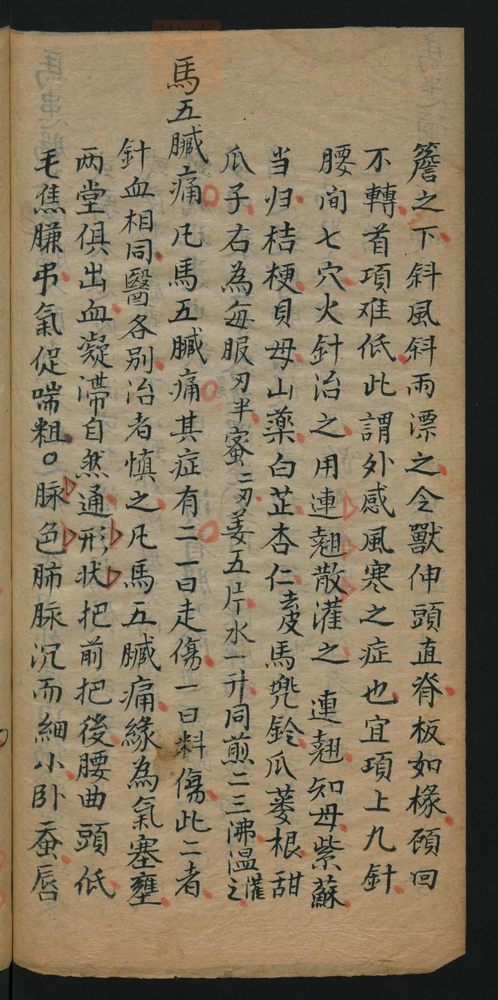 簷之下斜風斜雨漂之令獸伸頭直脊板如椽顧回
不轉首項难低此謂外感風寒之症也宜項上九針
腰间七穴火針治之用連翹散灌之 連翹知母紫蘇
当归桔梗貝母山薬白芷杏仁去皮馬兜鈴瓜蔞根甜
瓜子右為每服刃半蜜二刃姜五片水一升同煎二三沸温灌之
馬五臟痛凡馬五臟痛其症有二一曰走傷一曰料傷此二者
針血相同醫各別治者慎之凡馬五臟痛緣為氣塞壅
两堂俱出血凝滯自然通形状把前把後腰曲頭低
毛焦膁弔氣促喘粗○脉色肺脉沉而細小卧蚕唇